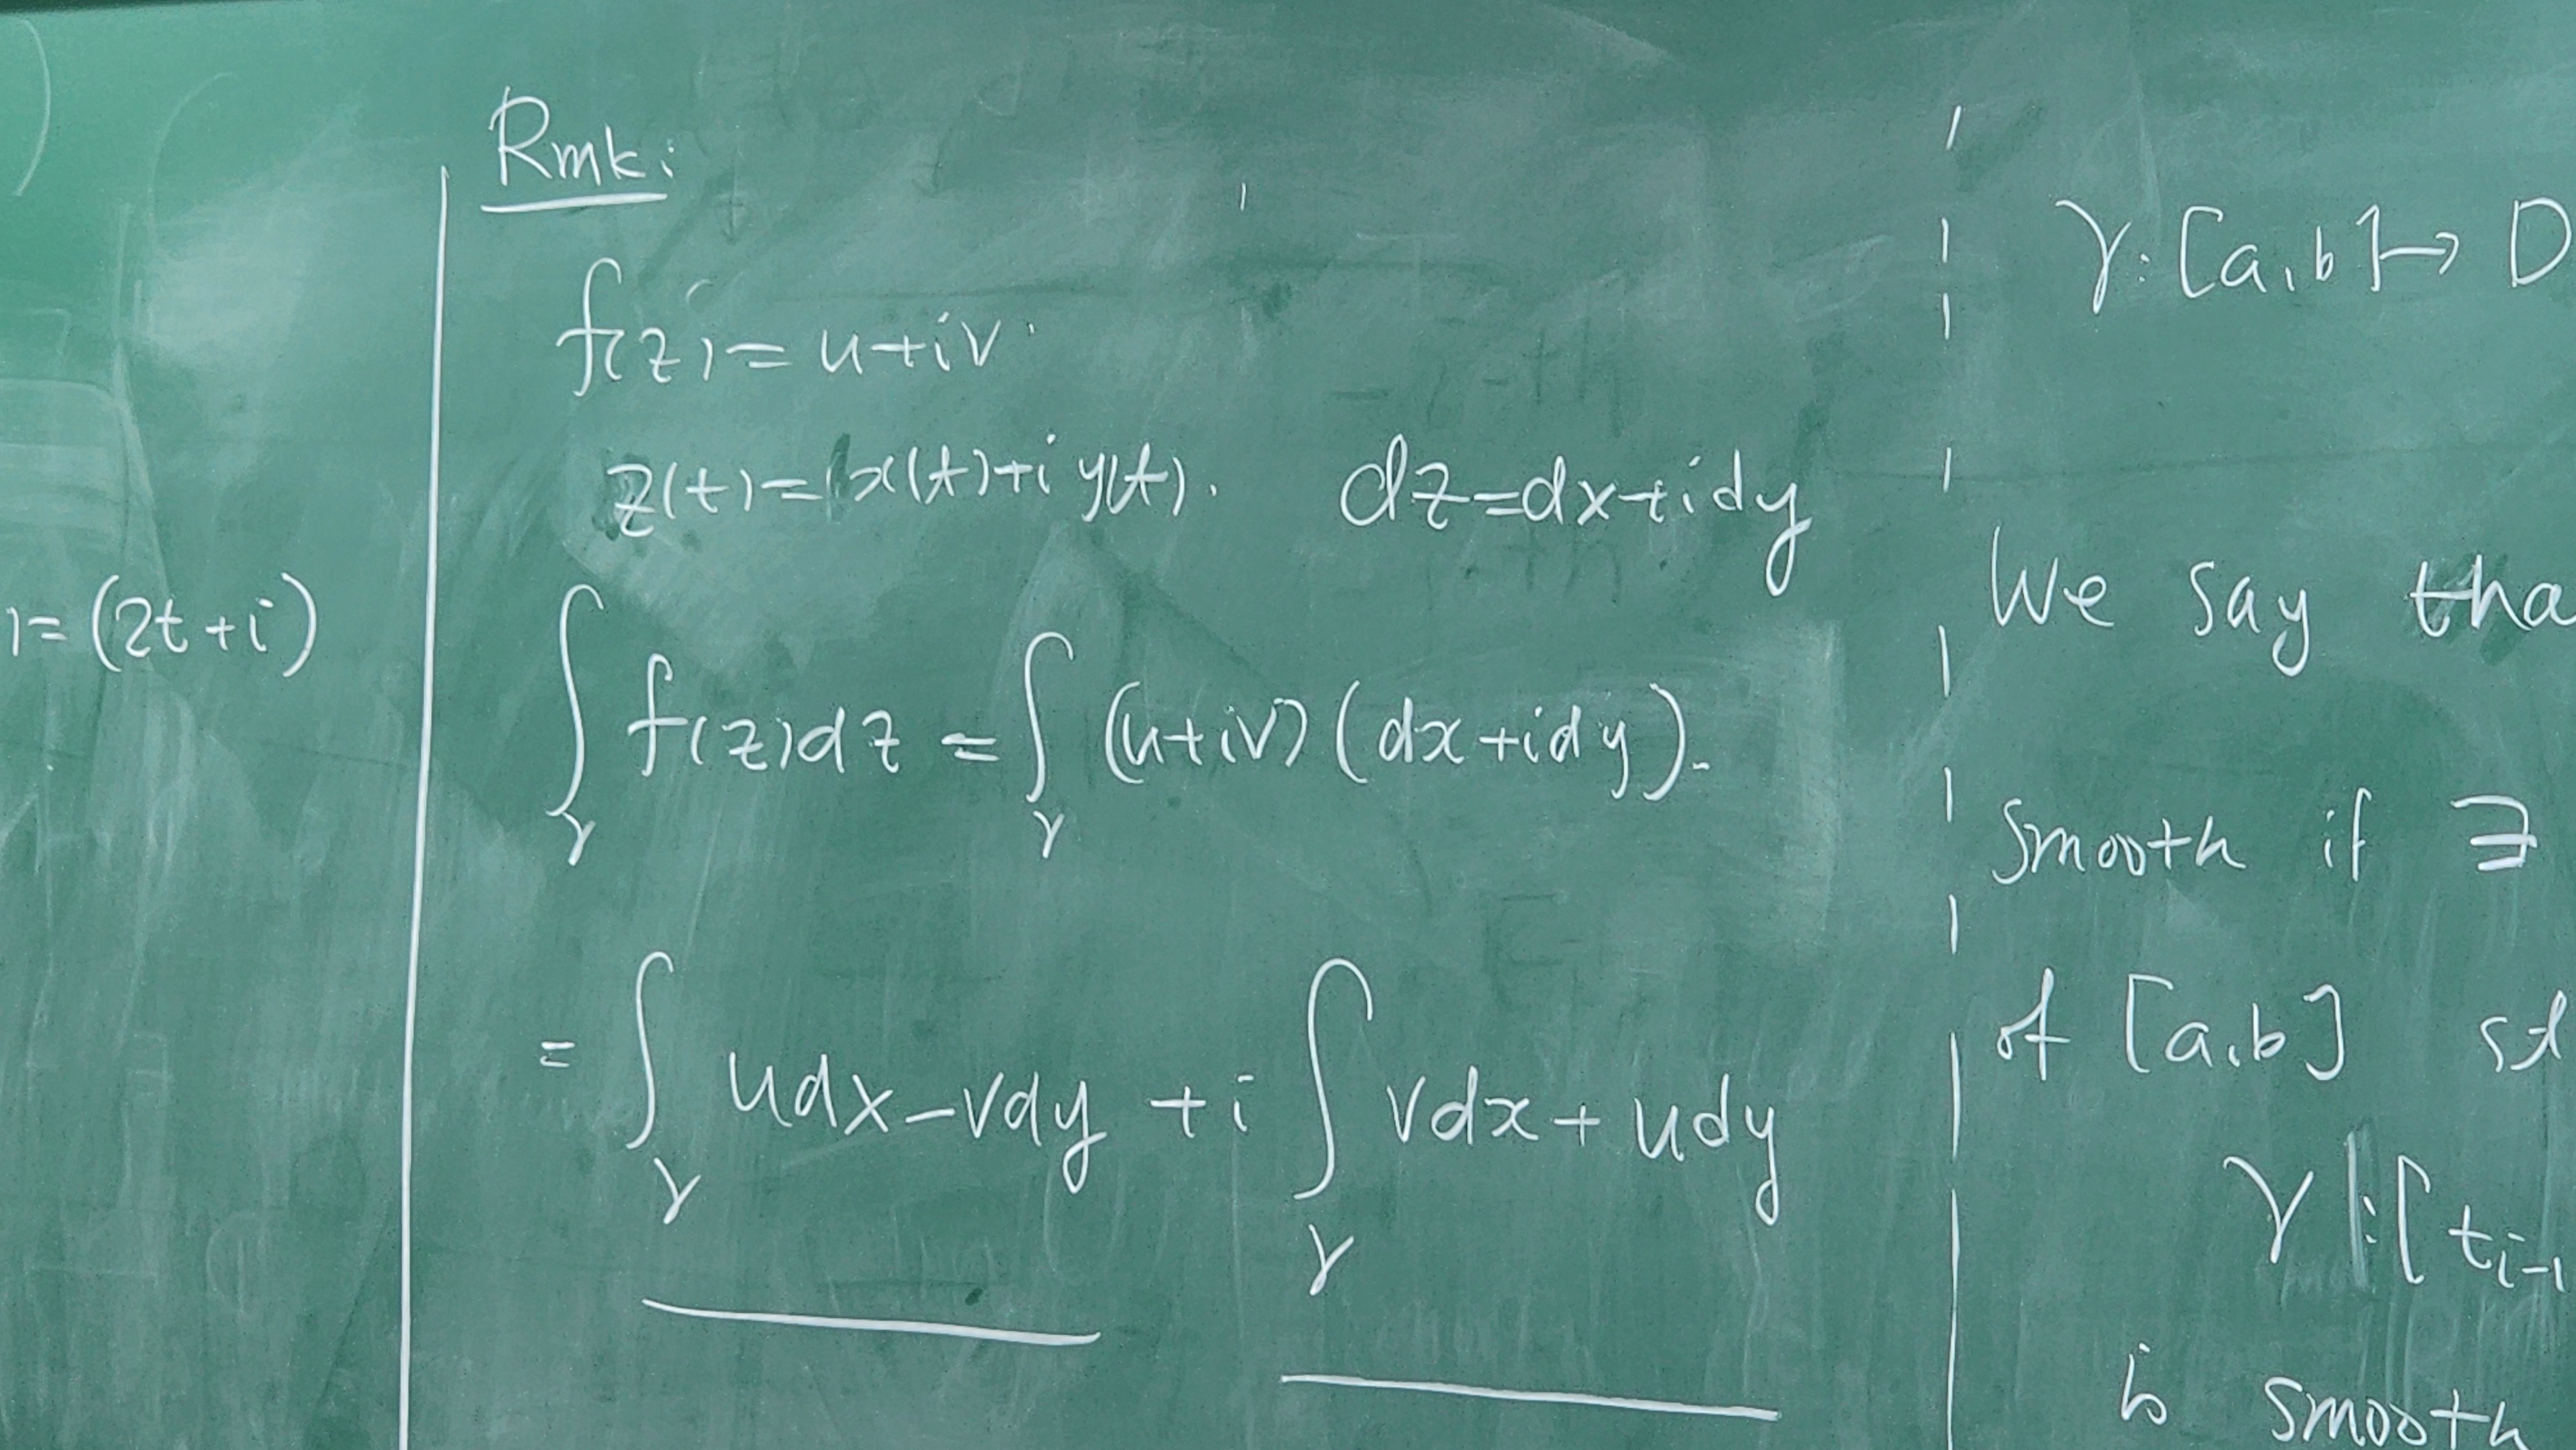 )
1=(2t+i)
Rmk:
f(z)=u+iv.
z(t)=x(t)+iy(t). dz=dx+idy
∫_γ f(z)dz = ∫_γ (u+iv)(dx+idy).
= ∫_γ udx-vdy + i ∫_γ vdx+udy
γ:[a,b]→D
We say tha
smooth if ∃
of [a,b] st
γ|:[t_{i-1}
is smooth